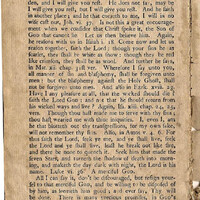 den, and I will give you rest. He does not say, may be
I will give you rest, or not, and it may be I will appoint
in another place; and he that cometh to me, I will in no
cast out, Joh. 6. 37. Is not this a great encourage-
ment when we consider that Christ spoke it, the Son of
God that cannot lie. Let us then believe him. Again,
he reasons with us. Isai 1. 18. Come now and let us
reason together, saith the Lord; though your sins be as
scarlet, they shall be as white as snow; though they be red
like crimson, they shall be as wool. And further he saith,
in Mat. 12. chap. 31 ver. Wherefore I say unto you,
all manner of sin and blasphemy, shall be forgiven unto
men; but the blasphemy against the Holy Ghost, shall
not be forgiven unto men. And also in Ezek. xviii. 23.
Have I any pleasure at all, that the wicked should die?
saith the Lord God; and not that he should return from
his wicked ways and live? Again, Isa. 43. chap. 24, 25,
ver. Though thou hast made me to serve with thy sins;
thou hast wearied me with thine iniquities. I, even I, am
he that blotteth out thy transgressions, for my own sake,
will not remember thy sins. Also, in Amos v. 4, 6. For
thus saith the Lord, seek ye me, and ye shall live, seek
the Lord and ye shall live, least he break out like fire,
and there be none to quench it. Seek him that made the
seven Stars, and turneth the shadow of death into morn-
ing, and maketh the day dark with night, the Lord is his
name. Luke vi. 36 A merciful God.
All I can say is, don't be discouraged, but resign your-
self to that merciful God, and be willing to be disposed of
by him, as seemeth him good; and ever say, Thy will
be done. There is many precious promises in God's